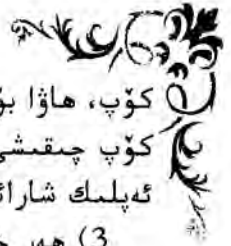 كۆپ، ھاۋا بۇ
كۆپ چىقىشى
ئەپلىك شارائ
3) ھەر